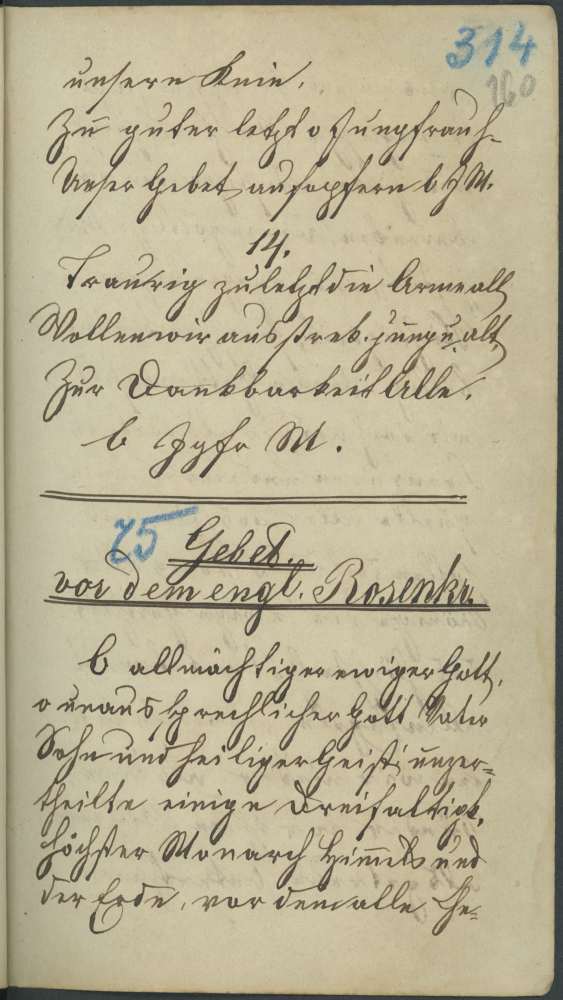 314
160
unsere Knie.
Zu guter letzt o Jungfrau
Unser Gebet aufopfern b J M.
14.
Traurig zuletzt die Arme all
Wollen wir ausstrek. jung u alt
Zur Dankbarkeit Alle.
b Jgfr M.
75 Gebet.
vor dem engl. Rosenkr.
O allmächtiger ewiger Gott,
o unaussprechlicher Gott Vater
Sohn und heiliger Geist, unzer=
theilte einige Dreifaltigk.
höchster Monarch Himmels und
der Erde, vor dem alle